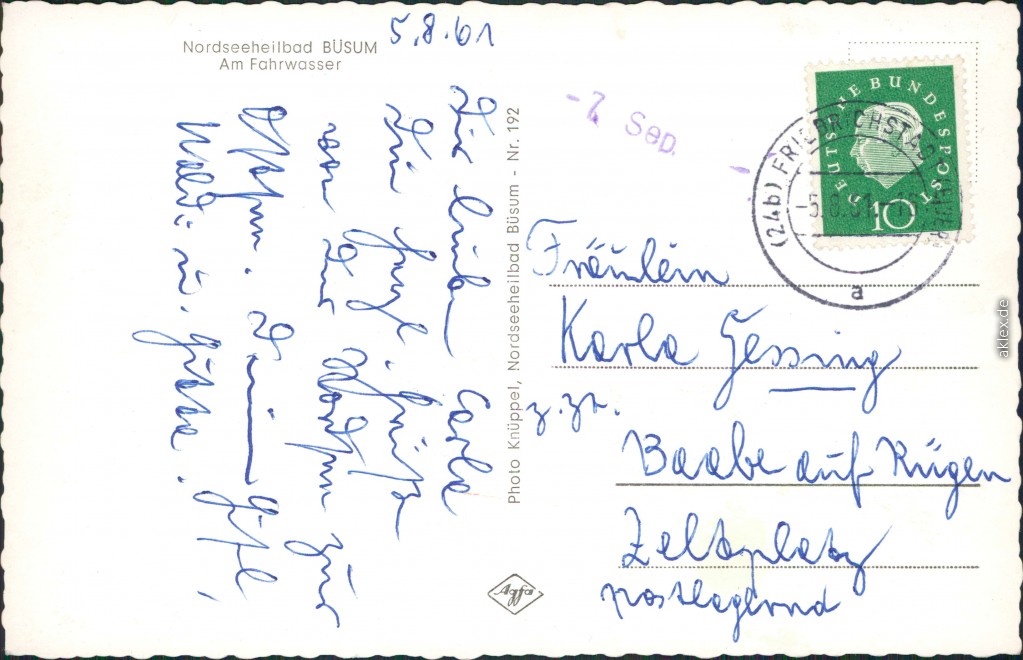 Nordseeheilbad BÜSUM
Am Fahrwasser
5.8.61
Dir liebe Carla
von der Nordsee zur
Ostsee. Deine
Photo Knüppel, Nordseeheilbad Büsum - Nr. 192
- 7. Sep. -
DEUTSCHE BUNDESPOST
10
(24b) FRIEDRICHSTADT
-5.8.61.-
a
Fräulein
Karla Gessing
z.Zt.
Baabe auf Rügen
Zeltplatz
postlagernd
Agfa
aklex.de